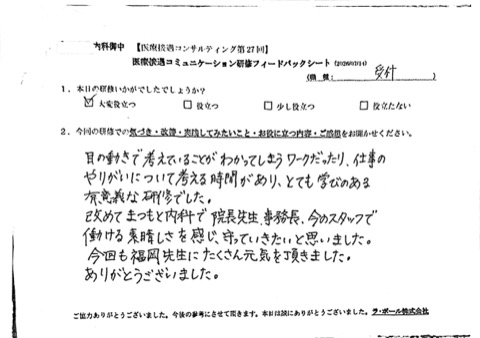 内科御中 【医療接遇コンサルティング第27回】
医療接遇コミュニケーション研修フィードバックシート
(職種: 受付 )
1．本日の研修いかがでしたでしょうか？
☑ 大変役立つ □ 役立つ □ 少し役立つ □ 役立たない
2．今回の研修での気づき・改善・実践してみたいこと・お役に立つ内容・ご感想をお聞かせください。
目の動きで考えていることがわかってしまうワークだったり、仕事の
やりがいについて考える時間があり、とても学びのある
有意義な研修でした。
改めてまつもと内科で院長先生、事務長、今のスタッフで
働ける素晴しさを感じ、守っていきたいと思いました。
今回も福岡先生にたくさん元気を頂きました。
ありがとうございました。
ご協力ありがとうございました。今後の参考にさせて頂きます。本日は誠にありがとうございました。ラ・ポール株式会社